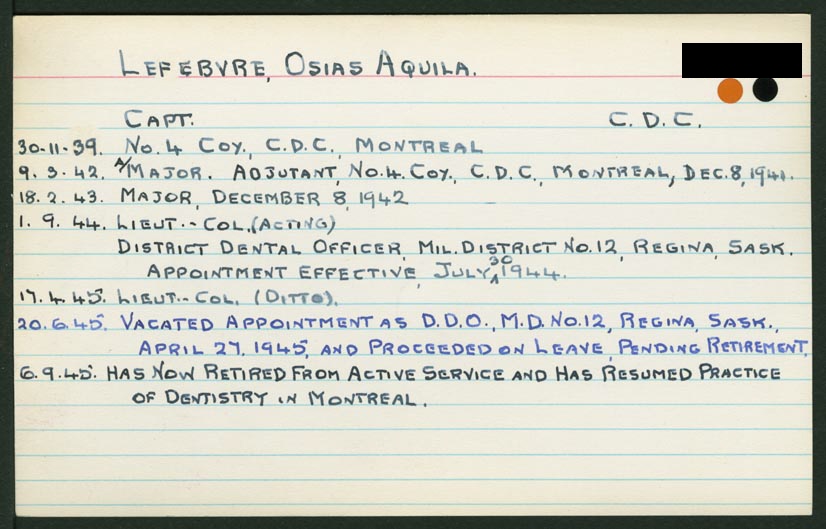 LEFEBVRE, OSIAS AQUILA.
CAPT. C.D.C.
30.11.39. NO.4 COY., C.D.C., MONTREAL
9.3.42. A/MAJOR. ADJUTANT, NO.4. COY., C.D.C., MONTREAL, DEC.8,1941.
18.2.43. MAJOR, DECEMBER 8, 1942
1.9.44. LIEUT.-COL.(ACTING)
DISTRICT DENTAL OFFICER, MIL.DISTRICT NO.12, REGINA, SASK.
APPOINTMENT EFFECTIVE, JULY 30, 1944.
17.4.45. LIEUT.-COL. (DITTO).
20.6.45. VACATED APPOINTMENT AS D.D.O., M.D.NO.12, REGINA, SASK.,
APRIL 27, 1945, AND PROCEEDED ON LEAVE, PENDING RETIREMENT.
6.9.45. HAS NOW RETIRED FROM ACTIVE SERVICE AND HAS RESUMED PRACTICE
OF DENTISTRY IN MONTREAL.